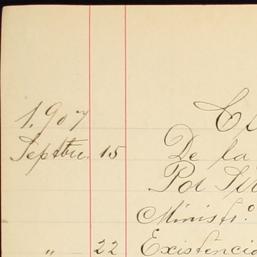 1.907
Septbre 15 De la
Por
Ministr.o
" 22 Existencia